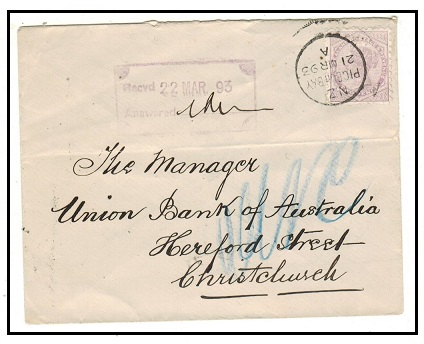 Recvd 22 MAR. 93
Answered
PIGEON BAY
N.Z
21 MR 93
A
The Manager
Union Bank of Australia
Hereford Street
Christchurch